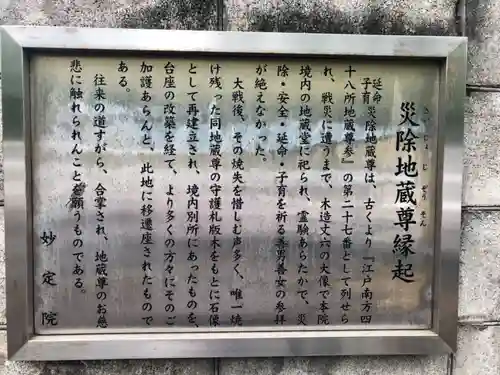 さいじょじぞうそん
災除地蔵尊縁起
延命
子育 災除地蔵尊は、古くより『江戸南方四
十八所地蔵尊参』の第二十七番として列せら
れ、戦災に遭うまで、木造丈六の大像で本院
境内の地蔵堂に祀られ、霊験あらたかで、災
除・安全・延命・子育を祈る善男善女の参拝
が絶えなかった。
大戦後、その焼失を惜しむ声多く、唯一焼
け残った同地蔵尊の守護札版木をもとに石像
として再建立され、境内別所にあったものを、
台座の改築を経て、より多くの方々にそのご
加護あらんと、此地に移遷座されたもので
ある。
往来の道すがら、合掌され、地蔵尊のお慈
悲に触れられんことを願うものである。
妙定院